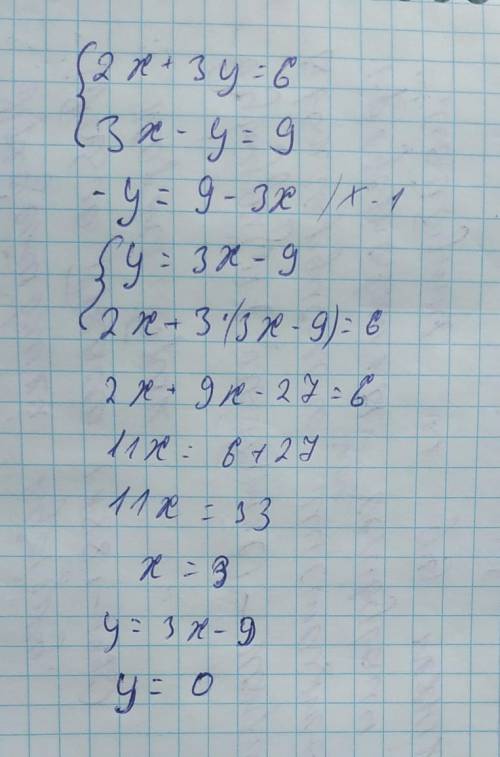 {2x + 3y = 6
3x - y = 9
-y = 9 - 3x /x -1
{y = 3x - 9
2x + 3·(3x - 9) = 6
2x + 9x - 27 = 6
11x = 6 + 27
11x = 33
x = 3
y = 3x - 9
y = 0